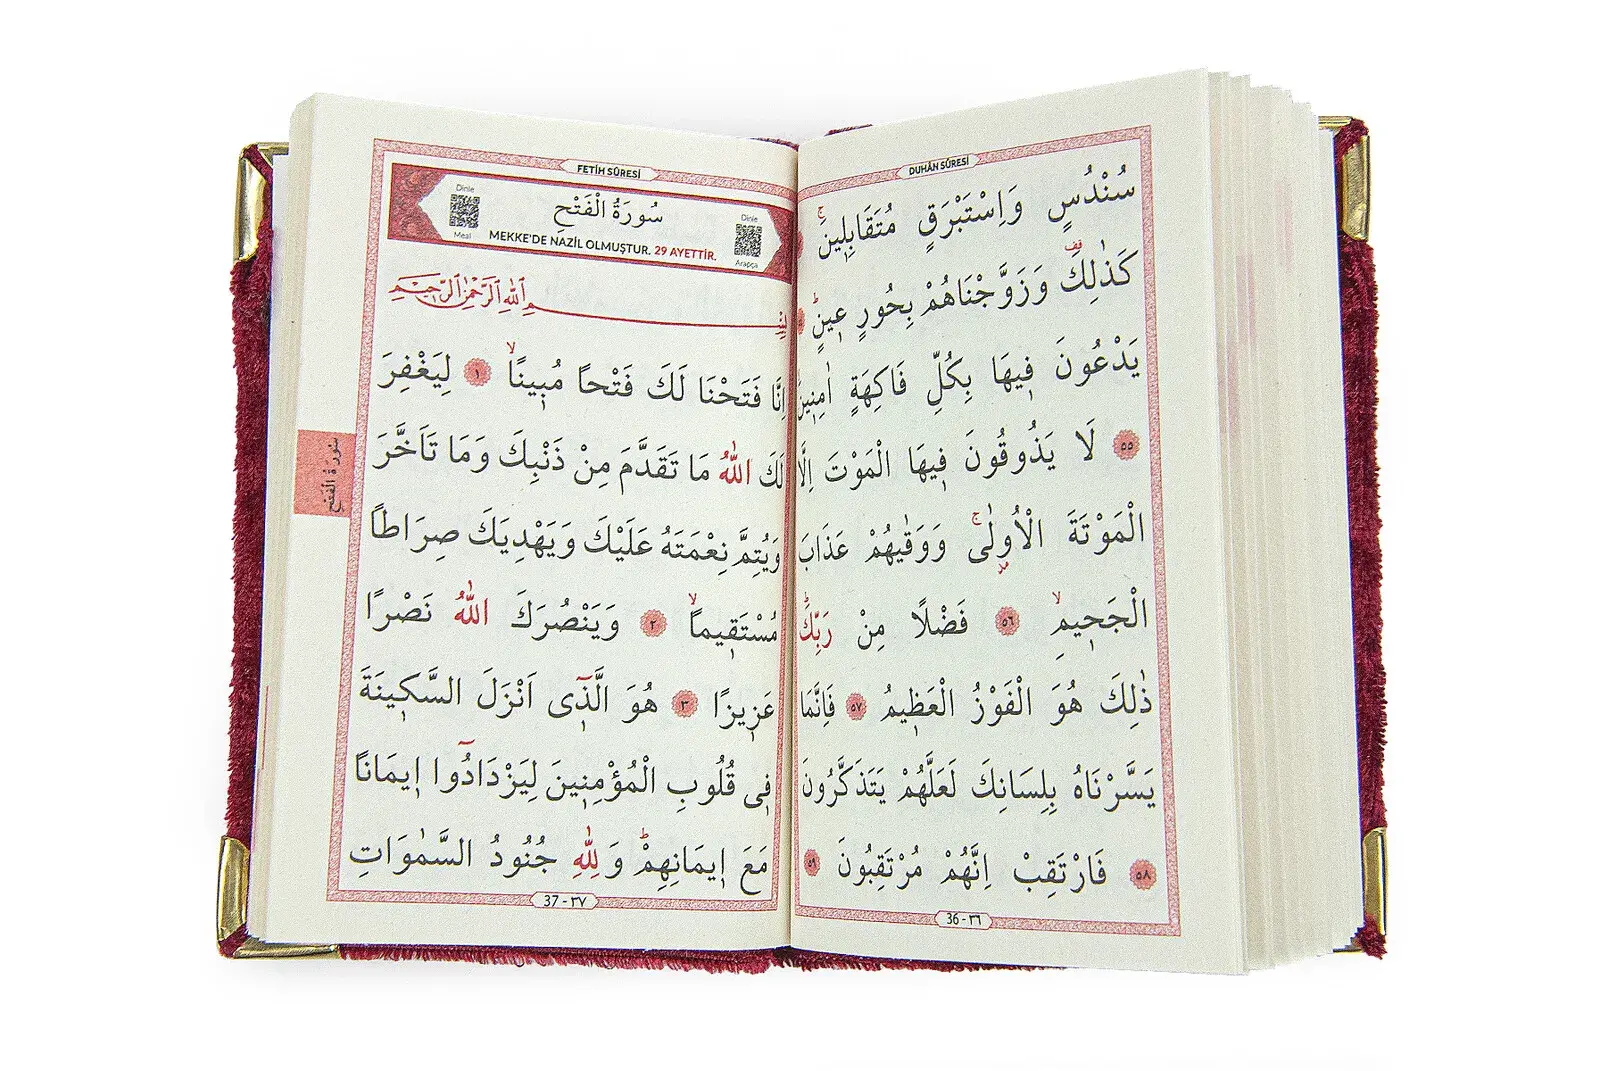 DUHÂN SÛRESİ
سُنْدُسٍ وَاِسْتَبْرَقٍ مُتَقَابِلٖينَۚ
كَذٰلِكَ قف وَزَوَّجْنَاهُمْ بِحُورٍ عٖينٍۜ
يَدْعُونَ فٖيهَا بِكُلِّ فَاكِهَةٍ اٰمِنٖينَۙ
٥٥ لَا يَذُوقُونَ فٖيهَا الْمَوْتَ اِلَّا
الْمَوْتَةَ الْاُولٰىۚ وَوَقٰيهُمْ عَذَابَ
الْجَحٖيمِۙ ٥٦ فَضْلًا مِنْ رَبِّكَۜ
ذٰلِكَ هُوَ الْفَوْزُ الْعَظٖيمُ ٥٧ فَاِنَّمَا
يَسَّرْنَاهُ بِلِسَانِكَ لَعَلَّهُمْ يَتَذَكَّرُونَ
٥٨ فَارْتَقِبْ اِنَّهُمْ مُرْتَقِبُونَ ٥٩
36 - ٣٦
FETİH SÛRESİ
Dinle
Meal
سُورَةُ الْفَتْحِ
MEKKE'DE NAZİL OLMUŞTUR. 29 AYETTİR.
Dinle
Arapça
بِسْمِ اللّٰهِ الرَّحْمٰنِ الرَّحٖيمِ
اِنَّا فَتَحْنَا لَكَ فَتْحًا مُبٖينًاۙ ١ لِيَغْفِرَ
لَكَ اللّٰهُ مَا تَقَدَّمَ مِنْ ذَنْبِكَ وَمَا تَاَخَّرَ
وَيُتِمَّ نِعْمَتَهُ عَلَيْكَ وَيَهْدِيَكَ صِرَاطًا
مُسْتَقٖيمًاۙ ٢ وَيَنْصُرَكَ اللّٰهُ نَصْرًا
عَزٖيزًا ٣ هُوَ الَّذٖٓى اَنْزَلَ السَّكٖينَةَ
فٖى قُلُوبِ الْمُؤْمِنٖينَ لِيَزْدَادُٓوا اٖيمَانًا
مَعَ اٖيمَانِهِمْۜ وَلِلّٰهِ جُنُودُ السَّمٰوَاتِ
37 - ٣٧
سُورَةُ الْفَتْحِ